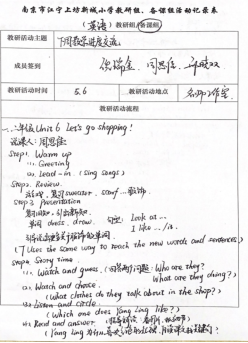 南京市江宁上坊新城小学教研组、备课组活动记录表
(英语)教研组/备课组
教研活动主题 下周教学进度交流
成员签到 周思佳
教研活动时间 5.6 教研活动地点 名师工作室
教研活动流程
一、二年级 Unit 6 Let's go shopping!
说课人:周思佳
Step1. Warm up
(1). Greeting
(2). Lead-in (sing songs)
Step2. Review.
游戏,复习 sweater, scarf
Step3. Presentation
复习旧知,引出新知.
单词 dress, draw. Look at ...
I like .../is.
( T likes the same way to teach the new words and sentences)
Step4. Story time
(1). Watch and guess. (回答两个问题: Who are they?
What are they doing?)
(2). Watch and choose.
(What clothes do they talk about in the shop?)
(3). Listen and circle.
(Which one does Yang Ling like?)
(4). Read and answer.
(Yang Ling